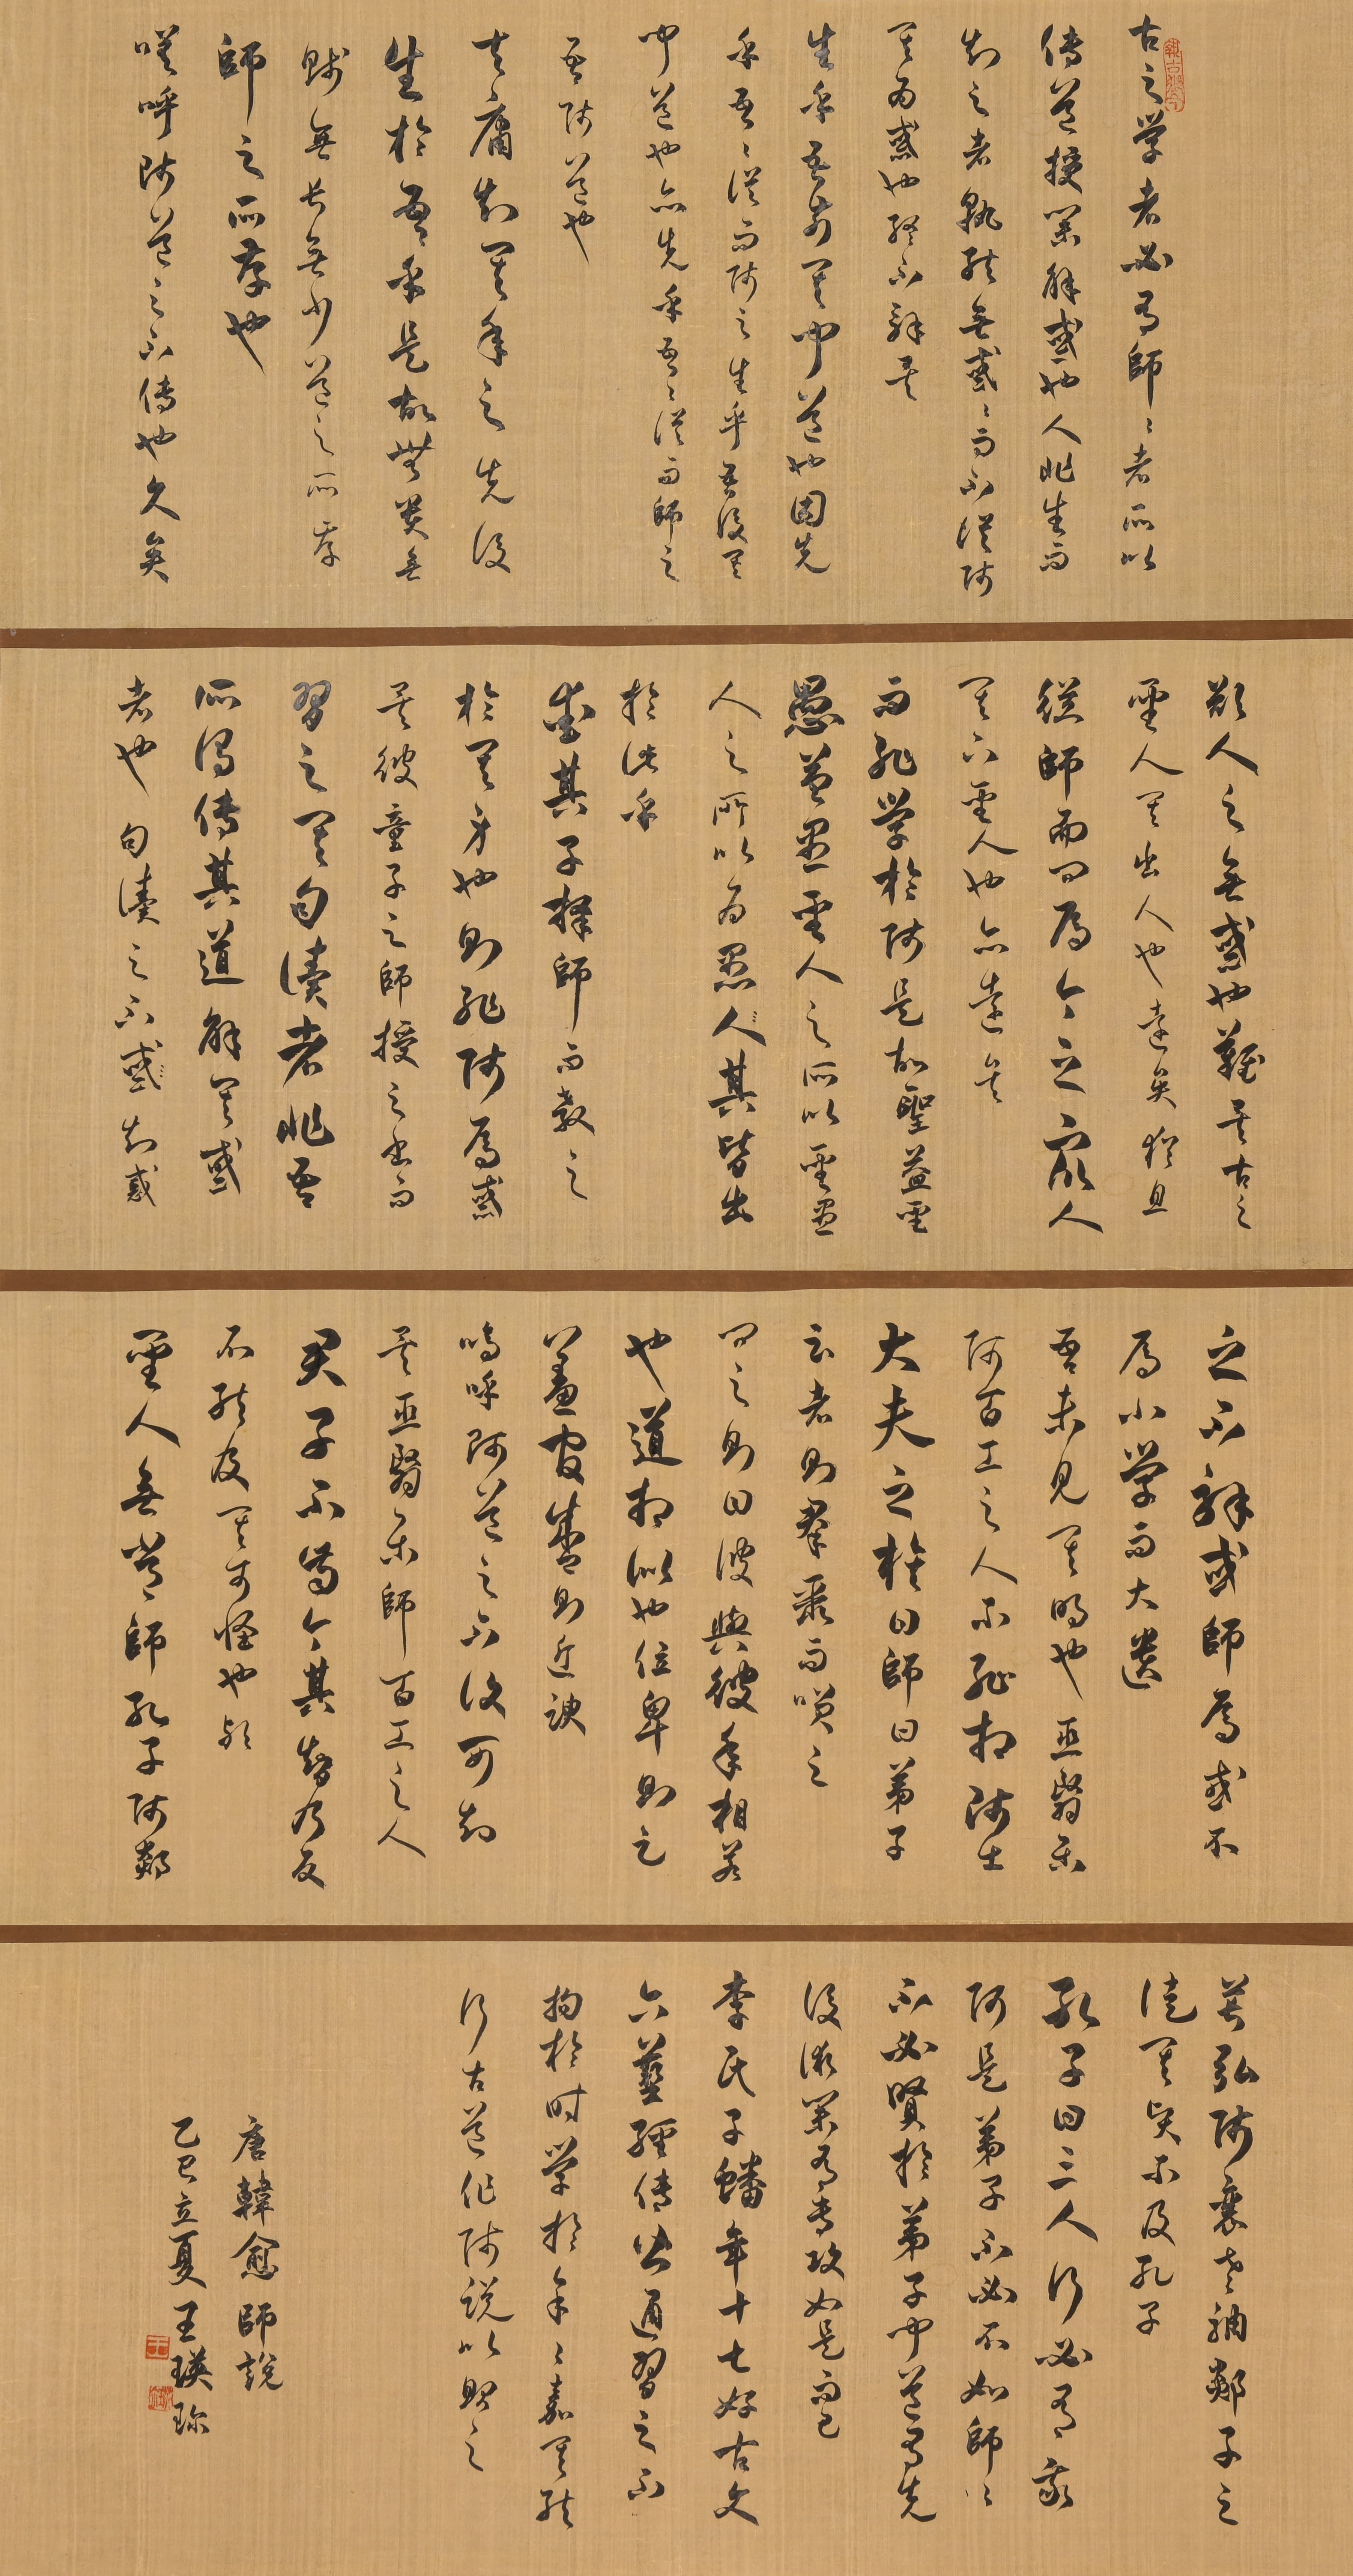 古之学者必有師〻者所以
傳道授業解惑也人非生而
知之者孰能無惑〻而不従師
其為惑也終不解矣
生乎吾前其聞道也固先
乎吾〻従而師之生乎吾後其
聞道也亦先乎吾〻従而師之
吾師道也
夫庸知其年之先後
生於吾乎是故無貴無
賤無長無少道之所存
師之所存也
嗟呼師道之不傳也久矣
欲人之無惑也難矣古之
聖人其出人也遠矣猶且
從師而問焉今之眾人
其下聖人也亦遠矣
而恥學於師是故聖益聖
愚益愚聖人之所以聖愚
人之所以為愚人其皆出
於此乎
愛其子擇師而教之
於其身也則恥師焉惑
矣彼童子之師授之書而
習之其句讀者非吾
所謂傳其道解其惑
者也句讀之不惑知惑
之不解或師焉或不
焉小學而大遺
吾未見其明也巫醫樂
師百工之人不恥相師士
大夫之族曰師曰弟子
云者則羣聚而笑之
問之則曰彼與彼年相若
也道相似也位卑則足
羞官盛則近諛
嗚呼師道之不復可知
矣巫醫樂師百工之人
君子不齒今其智乃反
不能及其可怪也歟
聖人無常師孔子師郯
萇弘師襄老聃郯子之
徒其賢不及孔子
孔子曰三人行必有我
師是弟子不必不如師〻
不必賢於弟子聞道有先
後術業有專攻如是而已
李氏子蟠年十七好古文
六藝經傳皆通習之不
拘於时學於余〻嘉其能
行古道作師説以貽之
唐韓愈師說
乙巳立夏王瑛琮